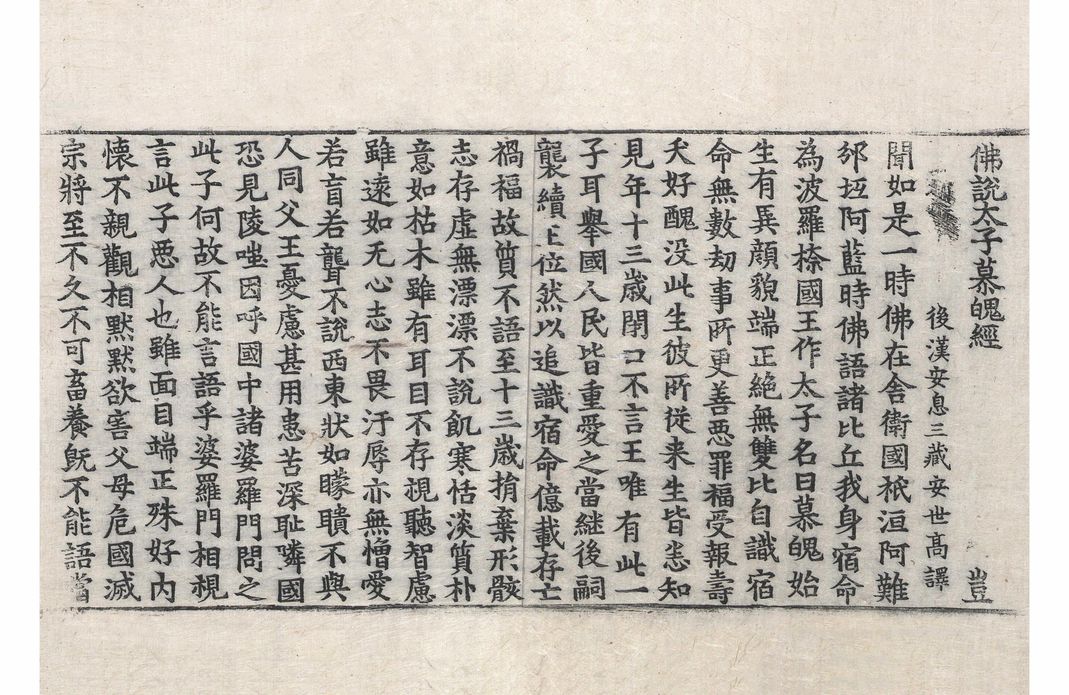 佛說太子慕魄經 豈
後漢安息三藏安世髙譯
聞如是一時佛在舎衛國祇洹阿難
邠坻阿藍時佛語諸比丘我身宿命
為波羅㮈國王作太子名曰慕魄始
生有異顔貌端正絶無雙比自識宿
命無數劫事所更善惡罪福受報壽
夭好醜没此生彼所従来生皆悉知
見年十三歳閉口不言王唯有此一
子耳舉國人民皆重愛之當継後嗣
襲續王位然以追識宿命億載存亡
禍福故質不語至十三歳捐棄形骸
志存虚無漂漂不說飢寒恬淡質朴
意如枯木雖有耳目不存視聽智慮
雖遠如无心志不畏汙辱亦無憎愛
若盲若聾不說西東狀如矇聵不與
人同父王憂慮甚用患苦深耻𨞬國
恐見陵嗤因呼國中諸婆羅門問之
此子何故不能言語乎婆羅門相視
言此子惡人也雖面目端正殊好内
懐不親觀相黙黙欲害父母危國滅
宗將至不久不可畜養旣不能語當